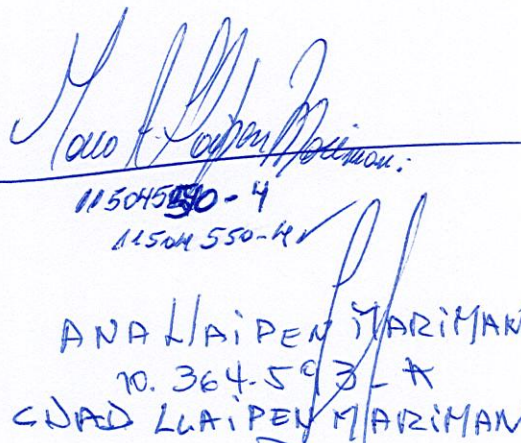 Llaipen Mariman.
11504550-4
11504550-4 ✓
ANA LLAiPEN MARiMAN
10.364.593-K
CDAD LLAiPEN MARiMAN